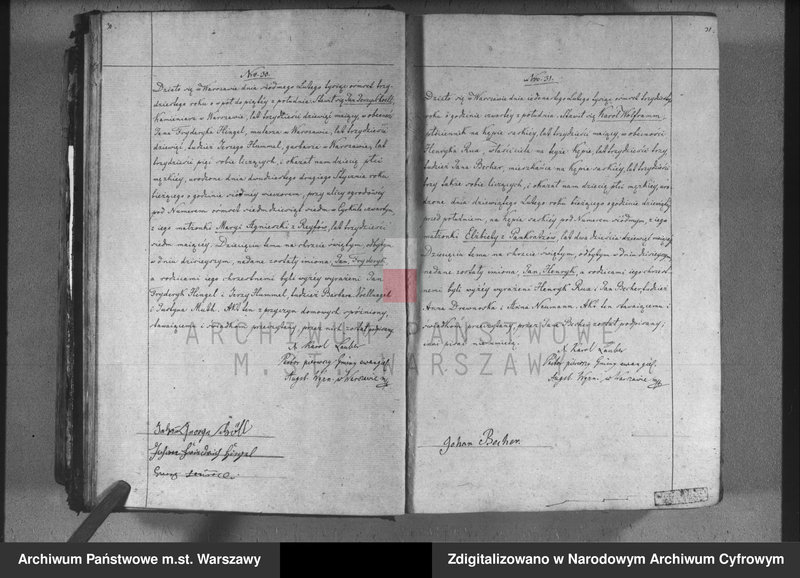 31
Nro. 30.
Działo się w Warszawie dnia siódmego Lutego tysiąc ośmset trzy-
dziestego roku o wpół do piątej z południa. Stawił się Jan Jerzy
Kamieniarz w Warszawie, lat trzydzieści dziewięć mający, w obecności
Jana Fryderyka Hengel, mularza w Warszawie, lat trzydzieści
dziewięć, tudzież Jerzego Hummel, garbarza w Warszawie, lat
trzydzieści pięć robie liczących, i okazał nam dziecię płci
męzkiej, urodzone dnia dwudziestego drugiego Stycznia roku
bieżącego o godzinie siódmej wieczorem, przy ulicy ogrodowej
pod Numerem ośmset siedmdziesiąt siedm w Cyrkule czwartym
z jego małżonki Maryi Agnieszki z, lat trzydzieści
siedm mającej. Dziecięciu temu na chrzcie świętym, odbytym
w dniu dzisiejszym, nadane zostały imiona, Jan, Fryderyk,
a rodzicami jego chrzestnemi byli wyżej wyrażeni Jan
Fryderyk Hengel i Jerzy Hummel, tudzież Barbara
i Justyna. Akt ten z przyczyn domowych spóźniony,
stawającemu i świadkom przeczytany, przez nich został podpisany.
X Karol Lauber
Pastor pierwszy Gminy ewangiel.
Augsb. Wyzn. w Warszawie
Johan Georg
Johann Friedrich Hengel
Nro. 31.
Działo się w Warszawie dnia Lutego tysiąc ośmset trzydziestego
roku o godzinie czwartej z południa. Stawił się Karol Wolframm,
na kępie saskiej, lat trzydzieści mający, w obecności
Henryka Rux, właściciela na tejże kępie, lat trzydzieści trzy
tudzież Jana Becher, mieszkańca na kępie saskiej, lat trzydzieści
trzy także robie liczących, i okazał nam dziecię płci męzkiej, uro-
dzone dnia dziewiątego Lutego roku bieżącego o godzinie dziewiątej
przed południem, na kępie saskiej pod Numerem siódmym, z jego
małżonki Elżbiety z Pankratzów, lat dwadzieścia dziewięć mającej.
Dziecięciu temu na chrzcie świętym, odbytym w dniu dzisiejszym,
nadane zostały imiona, Jan, Henryk, a rodzicami jego chrzest-
nemi byli wyżej wyrażeni Henryk Rux i Jan Becher, tudzież
Anna i Anna Neumann. Akt ten stawającemu i
świadkom przeczytany, przez Jana Becher został podpisany,
inni pisać nie umieją.
X Karol Lauber
Pastor pierwszy Gminy ewangiel.
Augsb. Wyzn. w Warszawie
Johan Becher
ARCHIWUM PAŃSTWOWE
M. ST. WARSZAWY
Archiwum Państwowe m.st. Warszawy
Zdigitalizowano w Narodowym Archiwum Cyfrowym